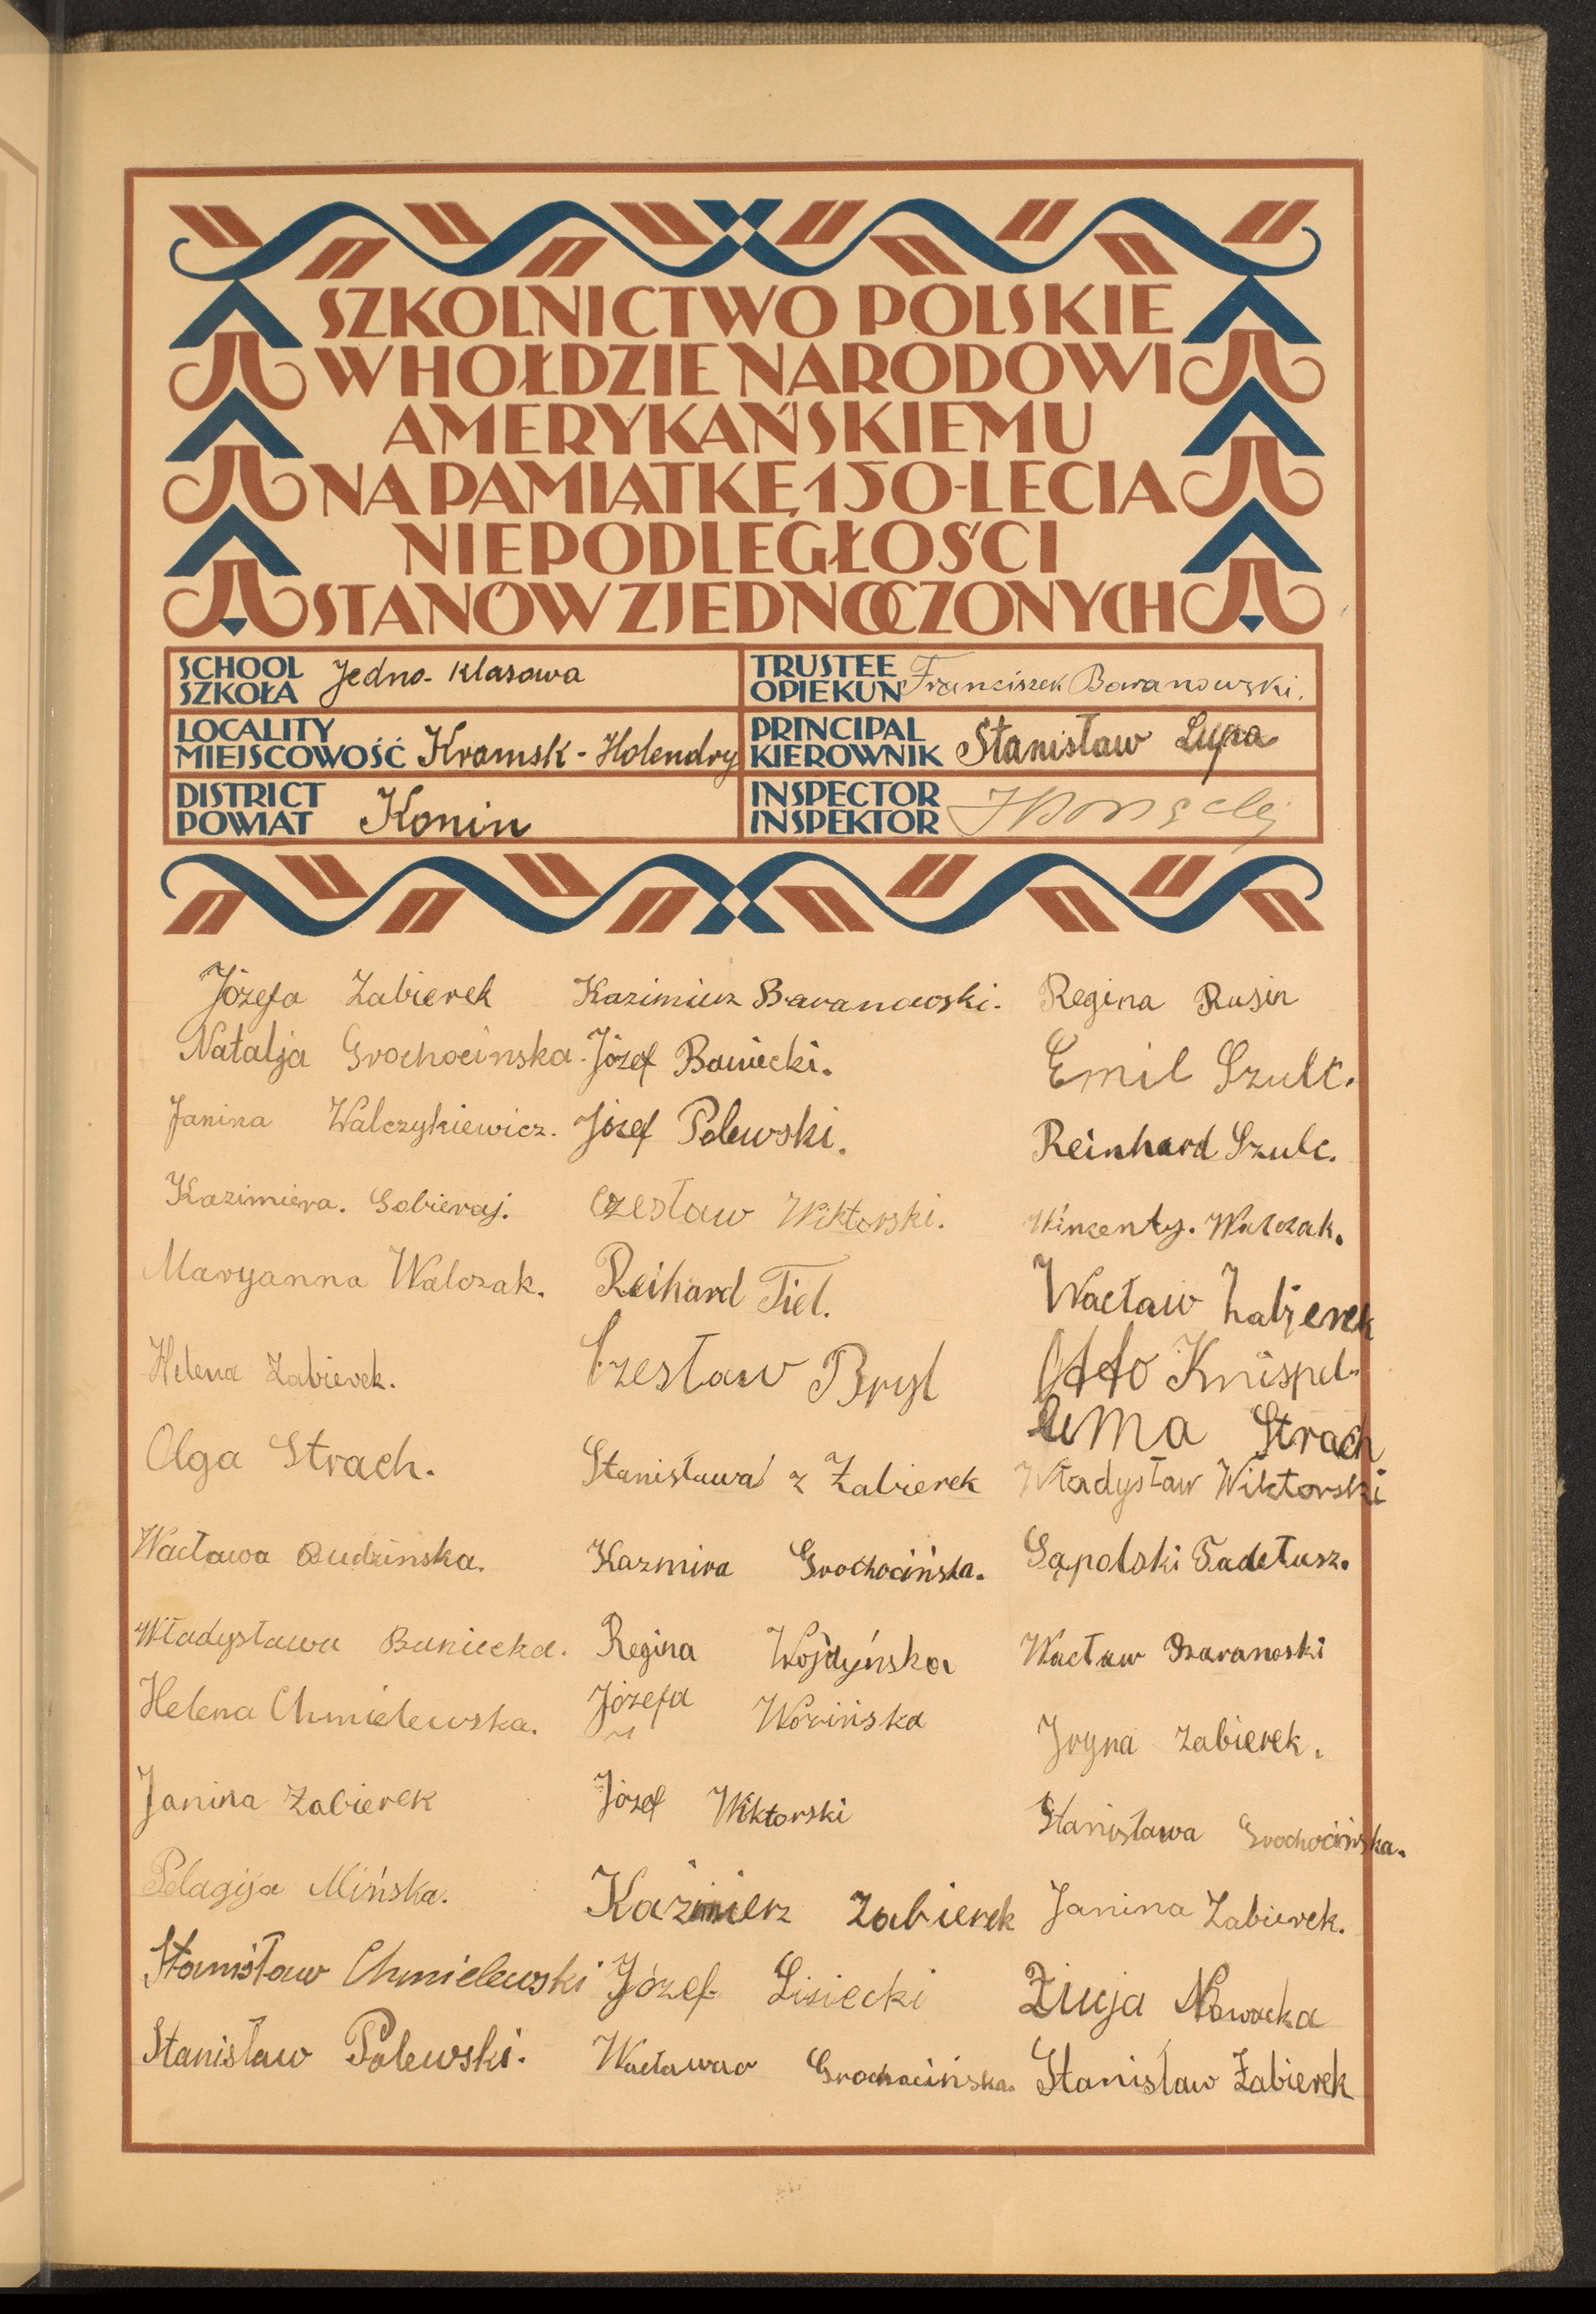 SZKOLNICTWO POLSKIE
W HOŁDZIE NARODOWI
AMERYKAŃSKIEMU
NA PAMIĄTKĘ 150-LECIA
NIEPODLEGŁOŚCI
STANÓW ZJEDNOCZONYCH
SCHOOL
SZKOŁA Jedno-klasowa
TRUSTEE
OPIEKUN Franciszek Baranowski.
LOCALITY
MIEJSCOWOŚĆ Kramsk-Holendry
PRINCIPAL
KIEROWNIK Stanisław Lupa
DISTRICT
POWIAT Konin
INSPECTOR
INSPEKTOR
Józefa Zabierek
Natalja Grochocinska.
Janina Walczykiewicz.
Kazimiera. Sobieraj.
Maryanna Walczak.
Helena Zabierek.
Olga Strach.
Wacława Budzinska.
Władysława Baniecka.
Helena Chmielewska.
Janina Zabierek
Pelagija Mińska.
Stanisław Chmielewski
Stanisław Polewski.
Kazimierz Baranowski.
Józef Baniecki.
Józef Polewski.
Czesław Wiktorski.
Reihard Tiel.
Czesław Bryl
Stanisława z Zabierek
Kazmira Grochocińska.
Regina Wojdyńska
Józefa
Józef Wiktorski
Kazimierz Zabierek
Józef Lisiecki
Wacława Grochocińska.
Regina Rusin
Emil Szulc.
Reinhard Szulc.
Wincenty. Walczak.
Wacław Zabjerek
Otto Knispel
Strach
Władysław Wiktorski
Gąpolski Tadełusz.
Wacław Baranoski
Jryna Zabierek.
Stanisława Grochocińska.
Janina Zabierek.
Nowacka
Stanisław Zabierek